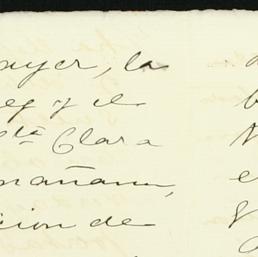 ayer, la
ey y el
Sta Clara
mañana,
ción de